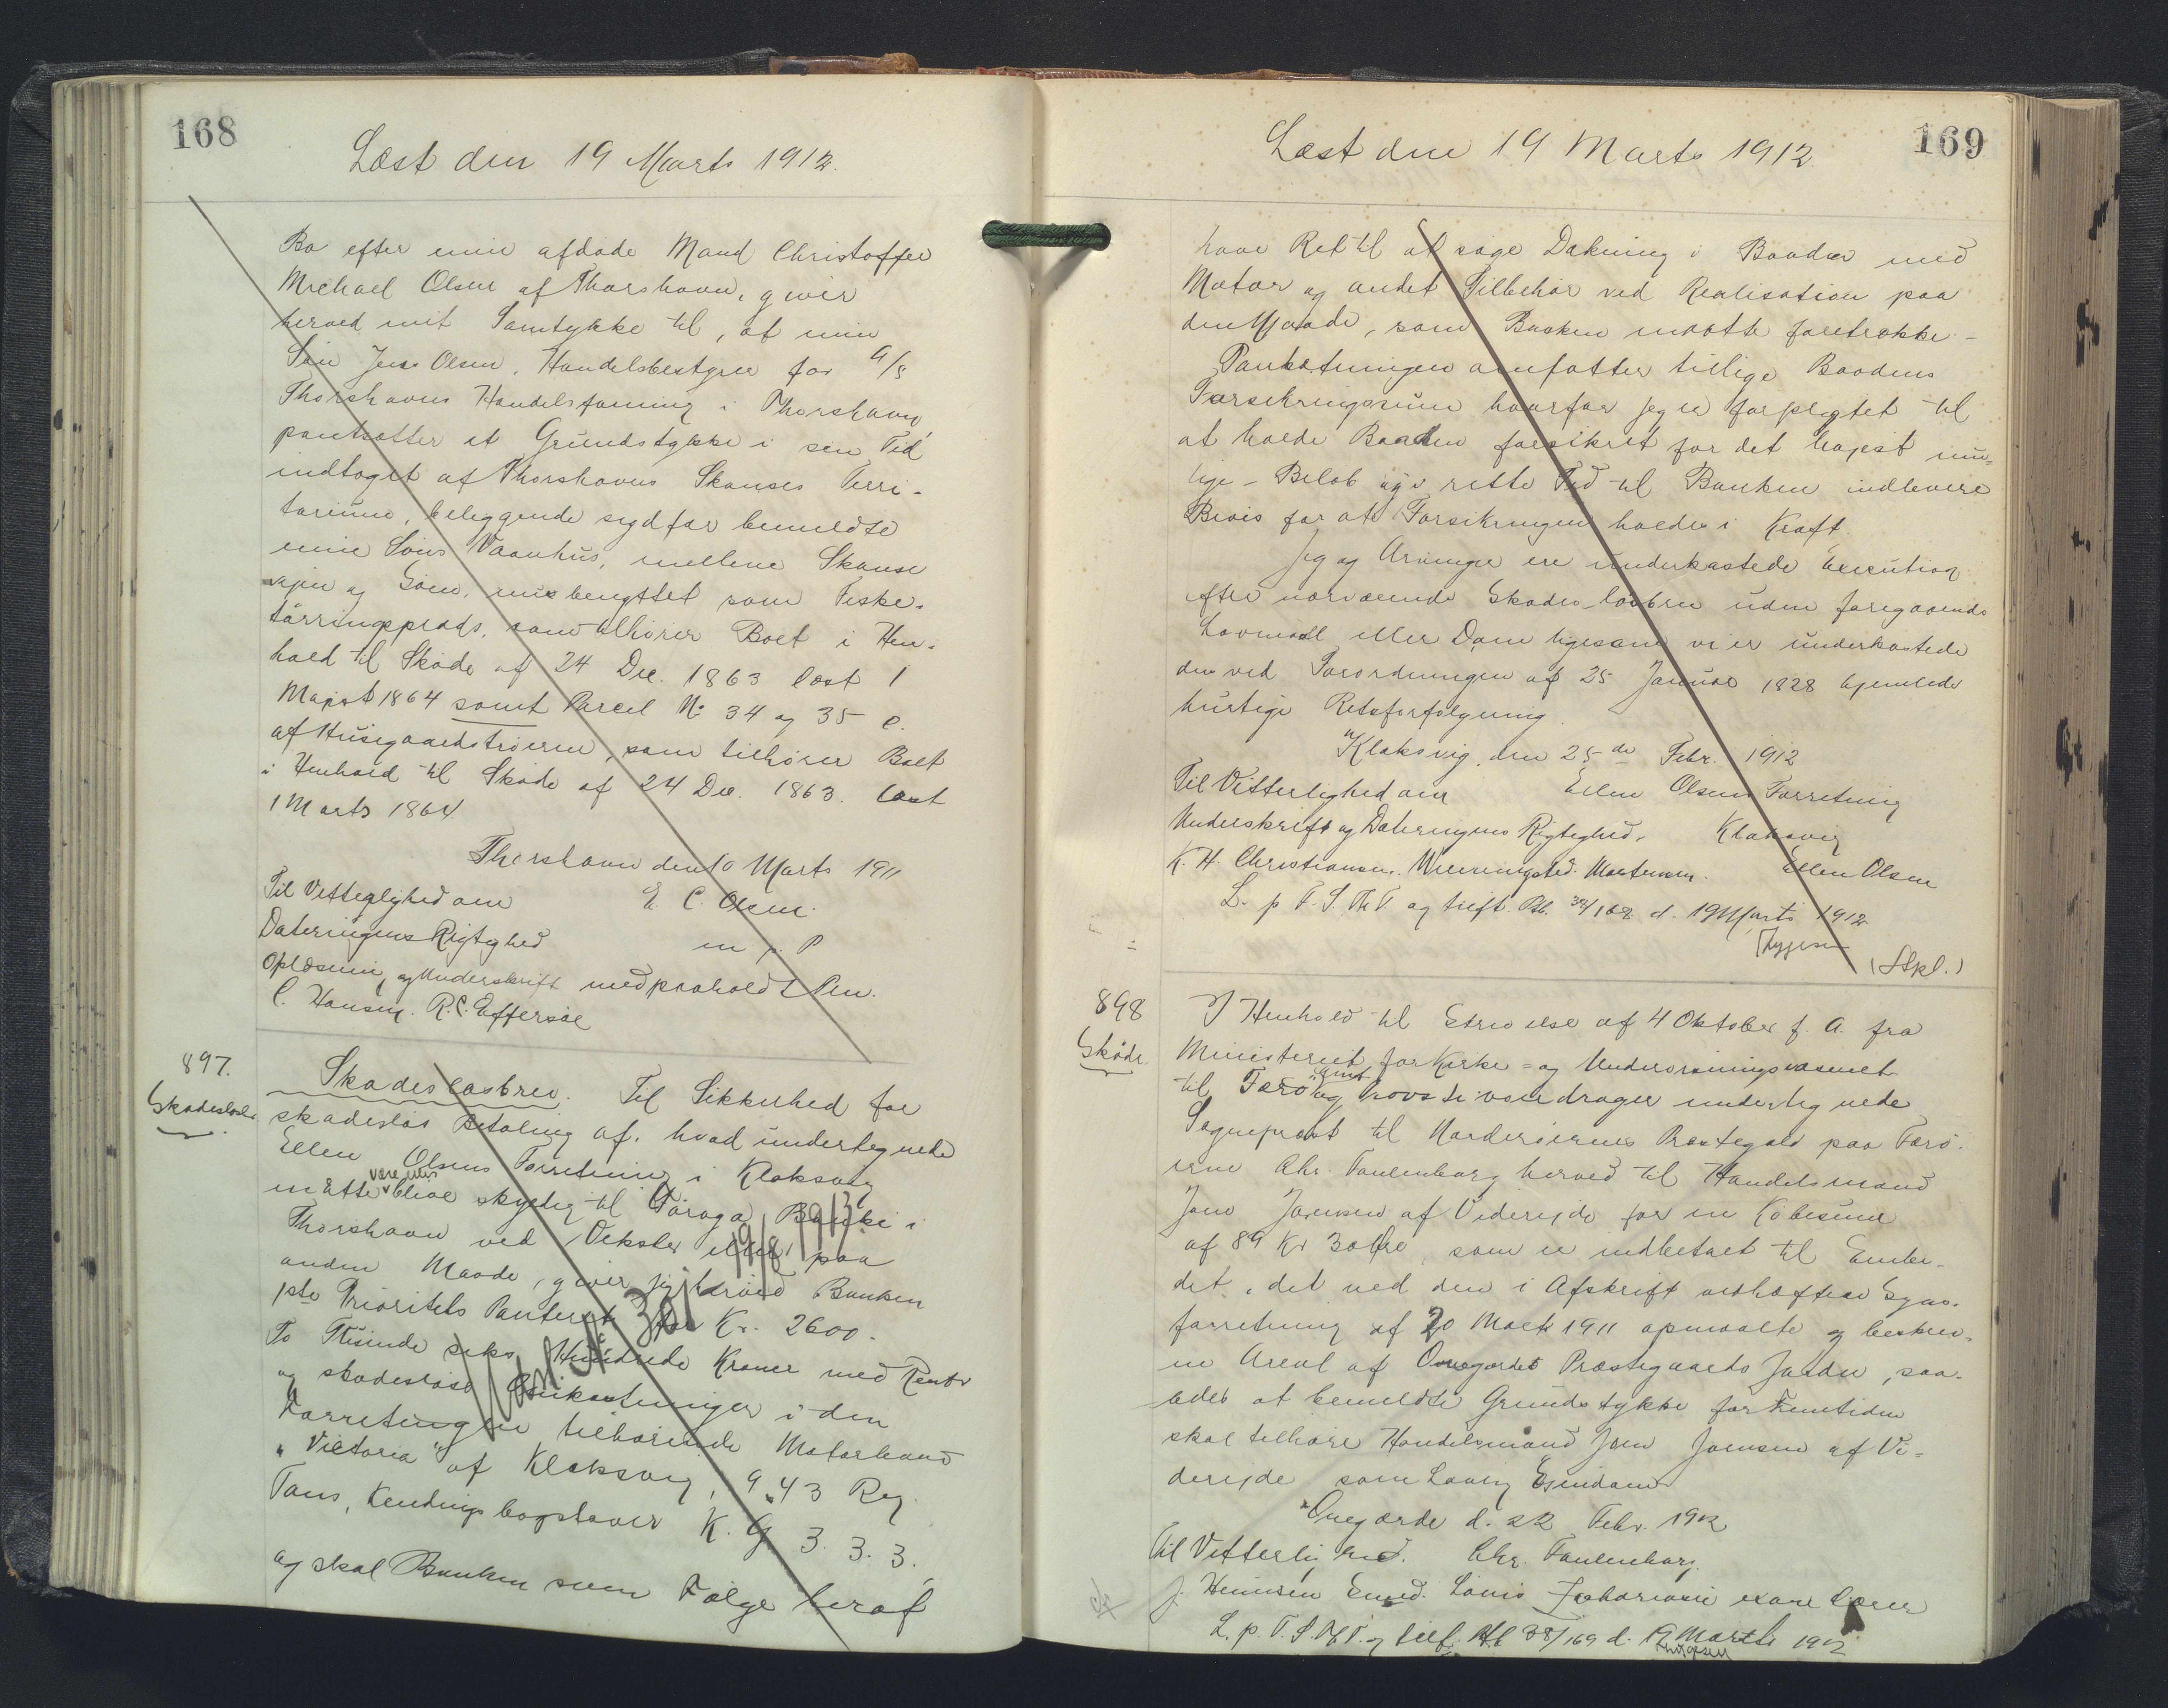 168
Læst den 19 Marts 1912.
Bo efter min afdøde Mand Christoffer
Michael Olsen af Thorshavn, giver
herved mit Samtykke til, at min
Søn Jens Olsen, Handelsbestyrer for A/S
Thorshavns Handelsforening i Thorshavn,
pantsætter et Grundstykke i sin Tid
indtaget af Thorshavns Skanses Terri-
torium, beliggende sydfor bemeldte
min Søns Vaanhus, mellem Skanse
vejen og Søen, nu benyttet som Fiske-
tørringsplads, som tilhører Boet i Hen-
hold til Skøde af 24 Dec. 1863 læst 1
Majst 1864 samt Parcel No 34 og 35 e.
af Husegaardstrøerne, som tilhører Boet
i Henhold til Skøde af 24 Dec. 1863. læst
1 Marts 1864
Thorshavn den 10 Marts 1911
Til Vitterlighed om E. C. Olsen.
Dateringens Rigtighed m. p. P
Oplæsning og Underskrift med paaholdt Pen.
C. Hansen. R. C. Effersøe
897.
Skadesløsbr.
Skadesløsbrev. Til Sikkerhed for
skadesløs Betaling af, hvad undertegnede
Ellen Olsens Forretning i Klaksvig
måtte være eller blive skyldig til Føroya Banki i
Thorshavn ved Veksler eller paa
anden Maade, giver jeg herved Banken
1ste Prioritets Panteret for Kr. 2600.
To Tusinde seks Hundrede Kroner med Renter
og skadesløse Omkostninger i den
Forretningen tilhørende Motorbaad
"Victoria" af Klaksvig, 9,43 Reg.
Tons, Kendingsbogstaver K. G. 3. 3. 3.,
og skal Banken som Følge heraf
19/8 1913
169
Læst den 19 Marts 1912.
have Ret til at søge Dækning i Baaden med
Motor og andet Tilbehør ved Realisation paa
den Maade, som Banken maatte foretrække.-
Pantsætningen omfatter tillige Baadens
Forsikringssum hvorfor jeg er forpligtet til
at holde Baaden forsikret for det højst mu-
lige Beløb og i rette Tid til Banken indlevere
Bevis for at Forsikringen holdes i Kraft.
Jeg og Arvinger ere underkastede Execution
efter nærværende Skadesløsbrev uden foregaaende
Lovmaal eller Dom ligesom vi er underkastede
den ved Forordningen af 25 Januar 1828 hjemlede
hurtige Retsforfølgning.
Klaksvig, den 25de Febr. 1912
Til Vitterlighed om Ellen Olsens Forretning
Underskrift og Dateringens Rigtighed. Klaksvig
K. H. Christiansen. Winningsted. Mortensen. Ellen Olsen
L. p. F. S. Th T. og tilf. Ptb. 38/168 d. 19 Marts 1912
Thygesen
(Stpl.)
898
Skøde.
I Henhold til Skrivelse af 4 Oktober f. A. fra
Ministeriet for Kirke- og Undervisningsvæsenet
til Færø Amt og Provsti overdrager undertegnede
Sognepræst til Norderøernes Præstegæld paa Færø-
erne Chr. Faulenborg herved til Handelsmand
Joen Joensen af Viderejde for en Købesum
af 89 Kr 30 Øre, som er indbetalt til Embe-
det, det ved den i Afskrift vedhæftede Syns-
forretning af 20 Marts 1911 opmaalte og beskrev-
ne Areal af Onegærdet Præstegaards Jorder, saa-
ledes at bemeldte Grundstykke for Fremtiden
skal tilhøre Handelsmand Joen Joensen af Vi-
derejde som Lovlig Ejendom
Onegærde d. 22 Febr. 1912
Til Vitterlighed. Chr. Faulenborg.
J. Heinesen Emed. Louis Zachariasen exam. Lærer
L. p. F. S. Th T. og tilf. Ptb 38/169 d. 19 Marts 1912
Thygesen